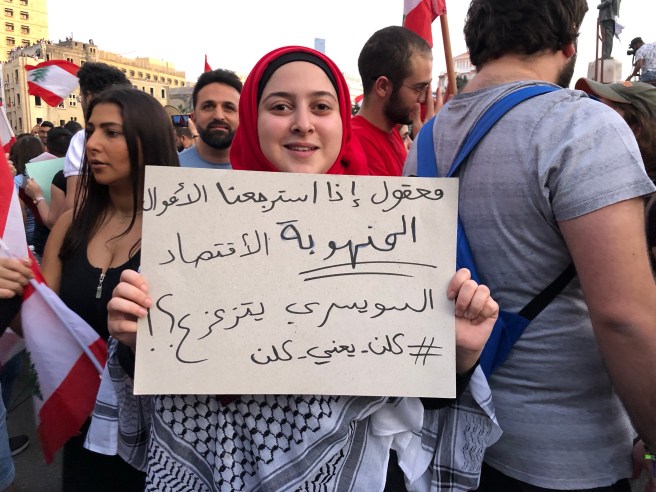 معقول إذا استرجعنا الأموال
المنهوبة الأقتصاد
السويسري يتزعزع؟!
#كلن_يعني_كلن